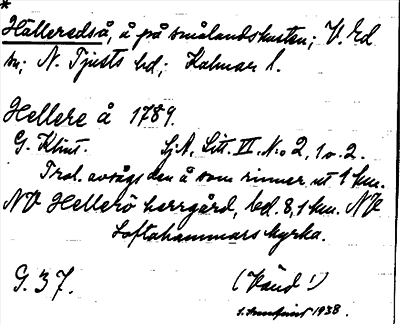 *
Halleredså, å på smålandskusten; V. Ed
sn; N. Tjusts hd; Kalmar l.
Hellere å 1789.
G. Klint. Sj.A, Litt. II. N:o 2, 1 o. 2.
Trol. avsågs den å som rinner ut 1 km.
NV Hellerö herrgård, bel. 8,1 km. NV
Loftahammars kyrka.
G. 37. (Känd!)
1938.